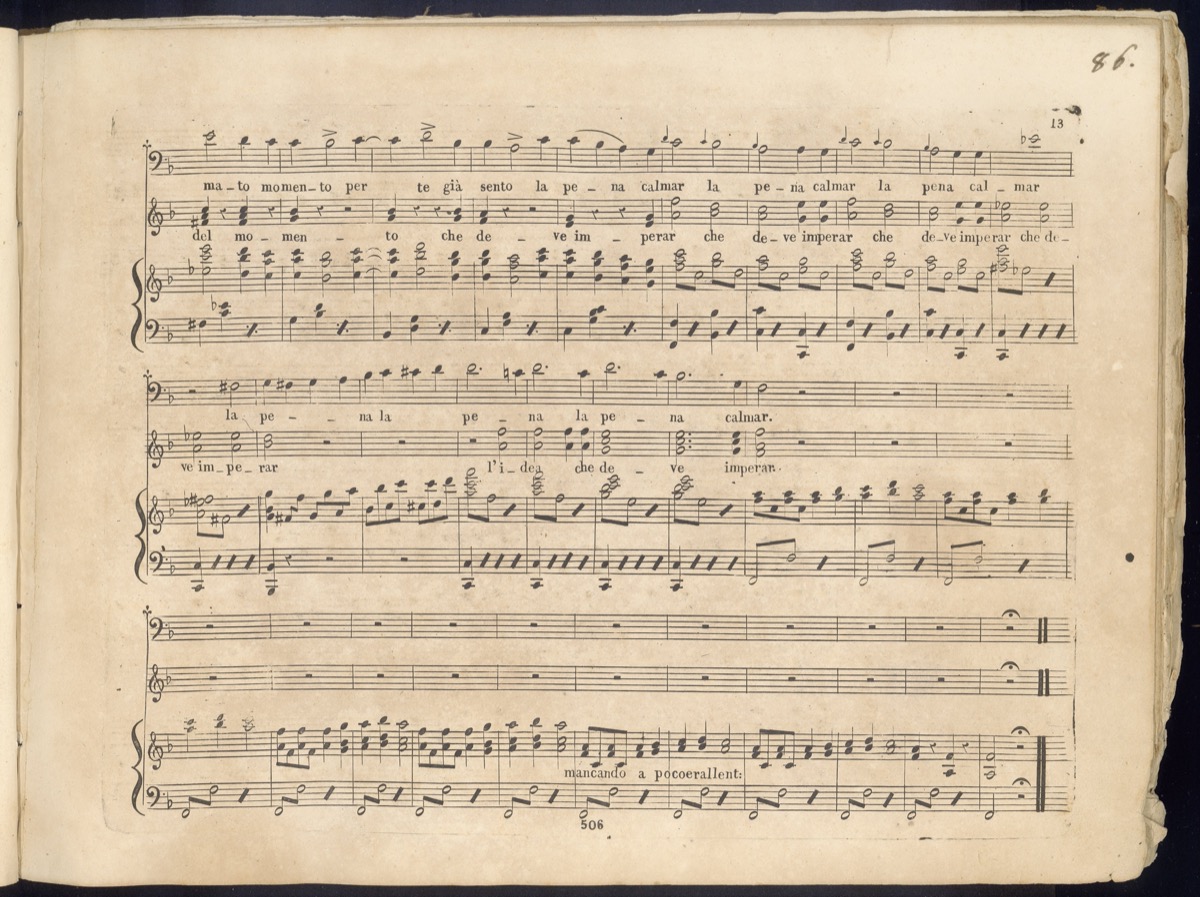 86.
13
ma_to momen_to per te già sento la pe_na calmar la pe_na calmar la pena cal_mar
del mo_men_to che de_ve im_perar che de_ve imperar che de_ve imperar che de_
la pe_na la pe_na la pe_na calmar.
ve im_pe_rar l'i_dea che de_ve imperar.
mancando a pocoerallent:
506